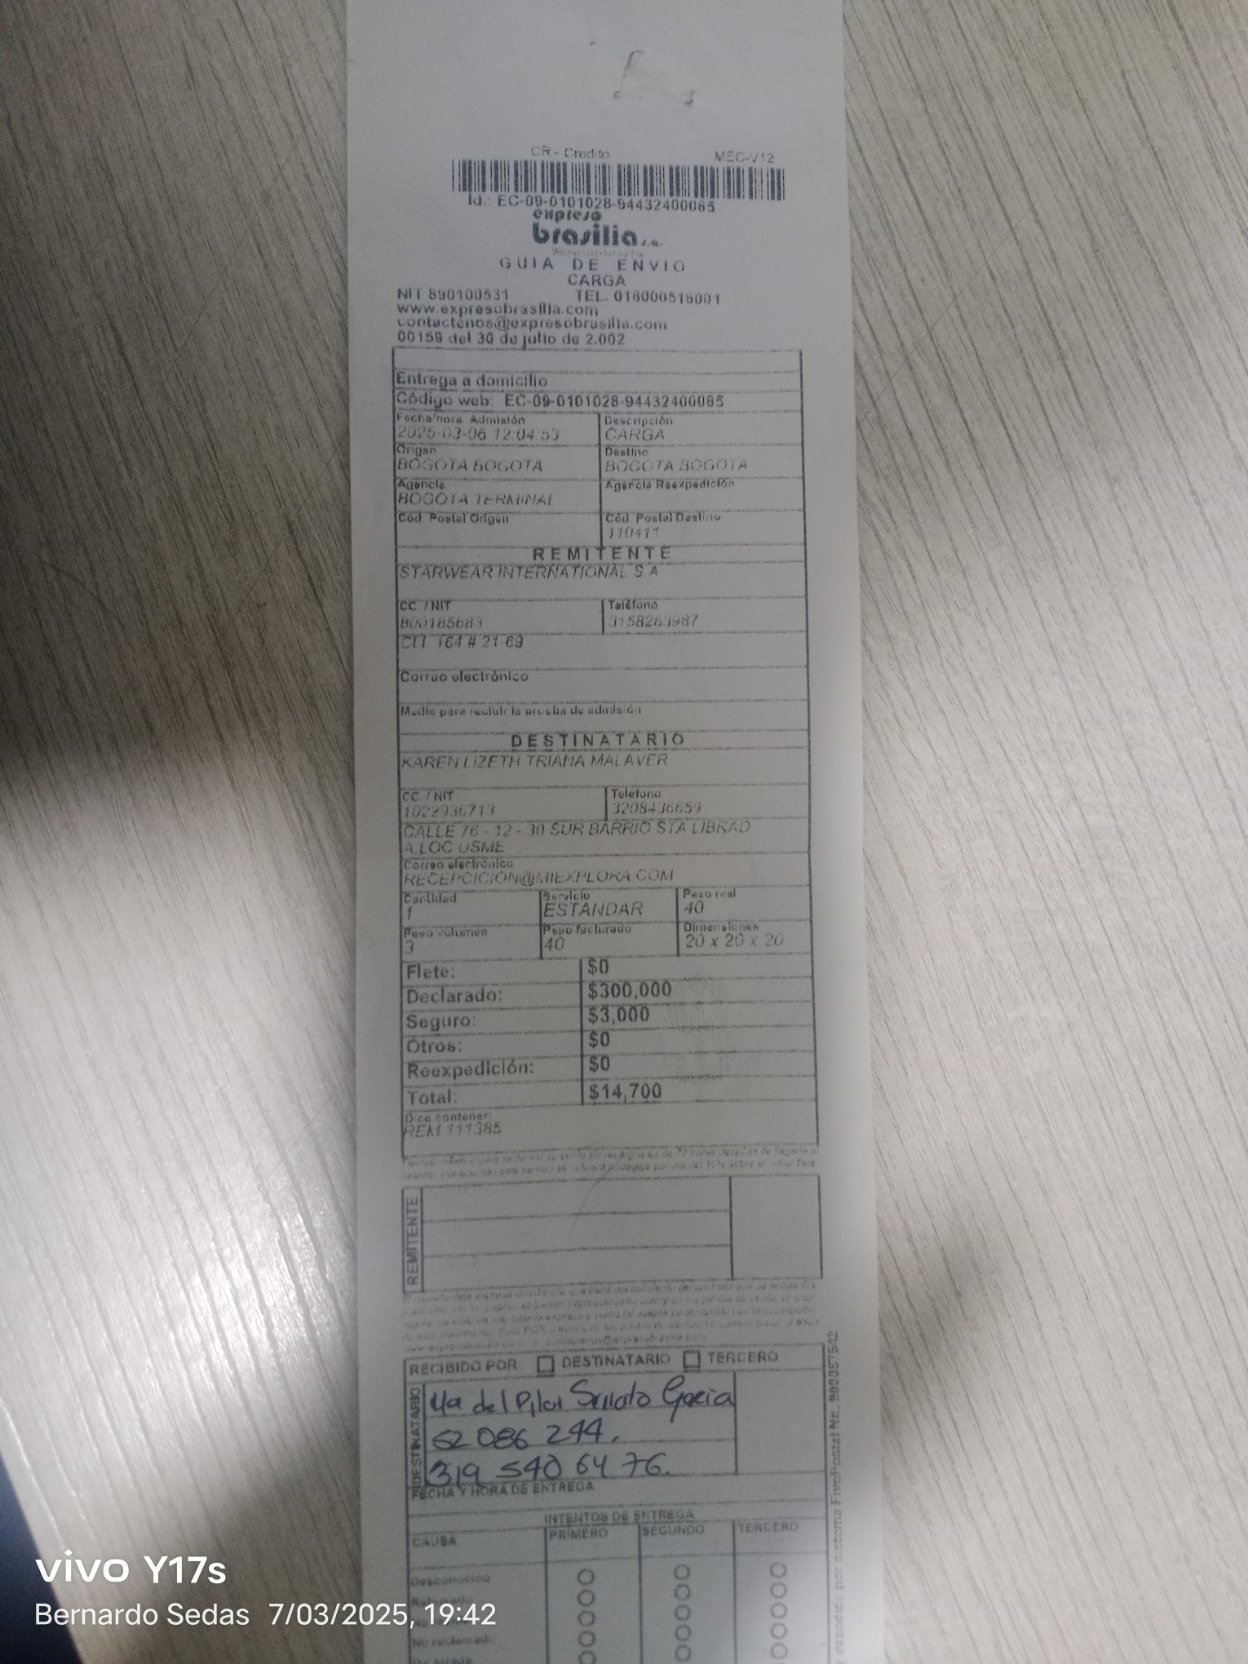 CR - Credito MEC-V12
Id.: EC-09-0101028-94432400085
expreso
brasilia s.a.
GUIA DE ENVIO
CARGA
NIT 890100531 TEL. 018000518001
www.expresobrasilia.com
contactenos@expresobrasilia.com
00159 del 30 de julio de 2.002
Entrega a domicilio
Código web: EC-09-0101028-94432400085
Fecha/hora Admisión Descripción
2025-03-06 12:04:53 CARGA
Origen Destino
BOGOTA BOGOTA BOGOTA BOGOTA
Agencia Agencia Reexpedición
BOGOTA TERMINAL
Cód. Postal Origen Cód. Postal Destino
110411
REMITENTE
STARWEAR INTERNATIONAL S A
CC / NIT Teléfono
800185683 3158263987
CLL 164 # 21 69
Correo electrónico
Medio para recibir la prueba de admisión
DESTINATARIO
KAREN LIZETH TRIANA MALAVER
CC / NIT Teléfono
1022936713 3208436659
CALLE 76 - 12 - 30 SUR BARRIO STA LIBRAD
A,LOC USME
Correo electrónico
RECEPCICION@MIEXPLORA.COM
Cantidad Servicio Peso real
1 ESTANDAR 40
Peso volumen Peso facturado Dimensiones
3 40 20 x 20 x 20
Flete: $0
Declarado: $300,000
Seguro: $3,000
Otros: $0
Reexpedición: $0
Total: $14,700
Dice contener:
REM 111385
REMITENTE
RECIBIDO POR: DESTINATARIO TERCERO
DESTINATARIO
Ma del Pilar Serrato Garcia
52 086 244.
319 540 64 76.
FECHA Y HORA DE ENTREGA
INTENTOS DE ENTREGA
CAUSA PRIMERO SEGUNDO TERCERO
Desconocido
No reclamado
vivo Y17s
Bernardo Sedas 7/03/2025, 19:42